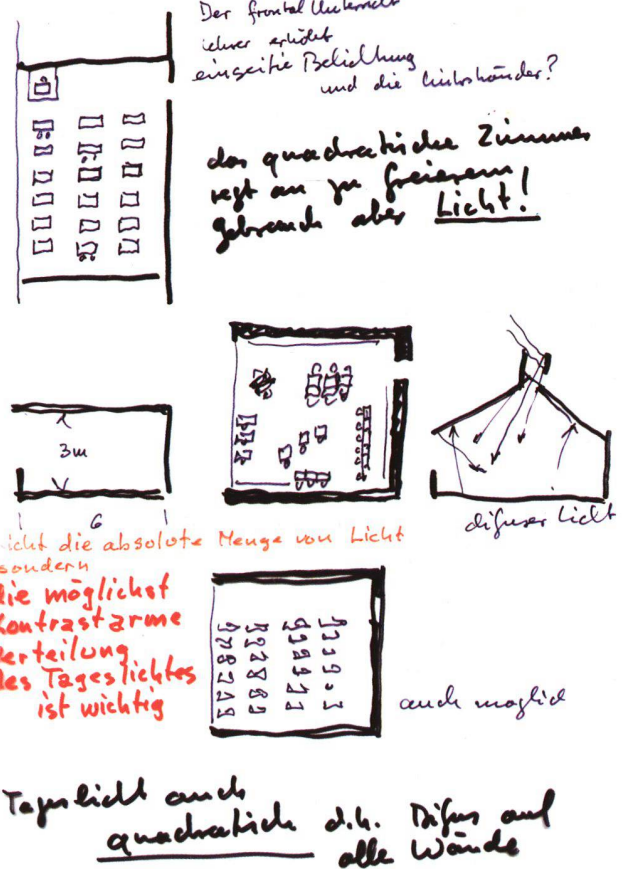 Der frontal Unterricht
lehrer erhöht
einseitie Belichtung
und die Linkshänder?
das quadratische Zimmer
regt an zu freierem
Gebrauch aber Licht!
3m
6
difuser Licht
icht die absolute Menge von Licht
sondern
die möglichst
Kontrastarme
Verteilung
des Tageslichtes
ist wichtig
auch möglich
Tageslicht auch
quadratisch d.h. Difus auf
alle Wände